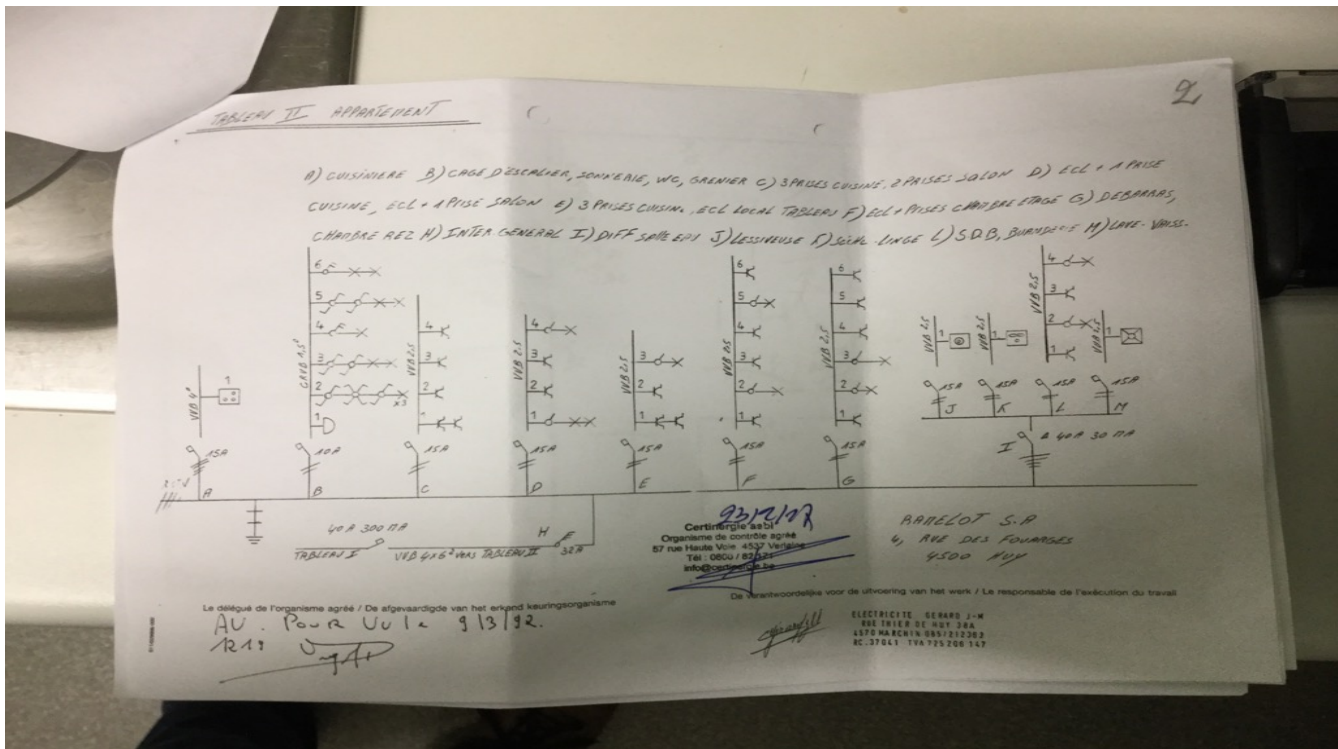 2
TABLEAU II APPARTEMENT
A) CUISINIERE B) CAGE D'ESCALIER, SONNERIE, WC, GRENIER C) 3 PRISES CUISINE, 2 PRISES SALON D) ECL + 1 PRISE
CUISINE, ECL + 1 PRISE SALON E) 3 PRISES CUISIN., ECL LOCAL TABLEAU F) ECL + PRISES CHAMBRE ETAGE G) DEBARRAS,
CHAMBRE REZ H) INTER. GENERAL I) DIFF SALLE EAU J) LESSIVEUSE K) SÈCHE-LINGE L) S.D.B, M) LAVE-VAISS.
6 5 4 3 2 1
x3
4 3 2 1
4 3 2 1
3 2 1
6 5 4 3 2 1
6 5 4 3 2 1
1
1
4 3 2 1
1
1
VVB 4²
VVB 2,5
VVB 2,5
VVB 2,5
VVB 2,5
VVB 2,5
VVB 2,5
VVB 2,5
VVB 2,5
VVB 2,5
15A 15A 15A 15A
J K L M
15A 10A 15A 15A 15A 15A 15A
A B C D E F G
I Δ 40A 30 MA
40A 300 MA
TABLEAU I
VVB 4x6² VERS TABLEAU II
H
32A
23/2/17
Certinergie asbl
Organisme de contrôle agréé
57 rue Haute Voie 4537 Verlaine
Tél : 0800 / 82 171
info@certinergie.be
RAMELOT S.A
4, RUE DES FOURAGES
4500 HUY
Le délégué de l'organisme agréé / De afgevaardigde van het erkend keuringsorganisme
De verantwoordelijke voor de uitvoering van het werk / Le responsable de l'exécution du travail
AV. POUR VU le 9/3/92.
ELECTRICITE GERARD J-M
RUE THIER DE HUY 38A
4570 MARCHIN 085/212302
RC.37041 TVA 725 206 147